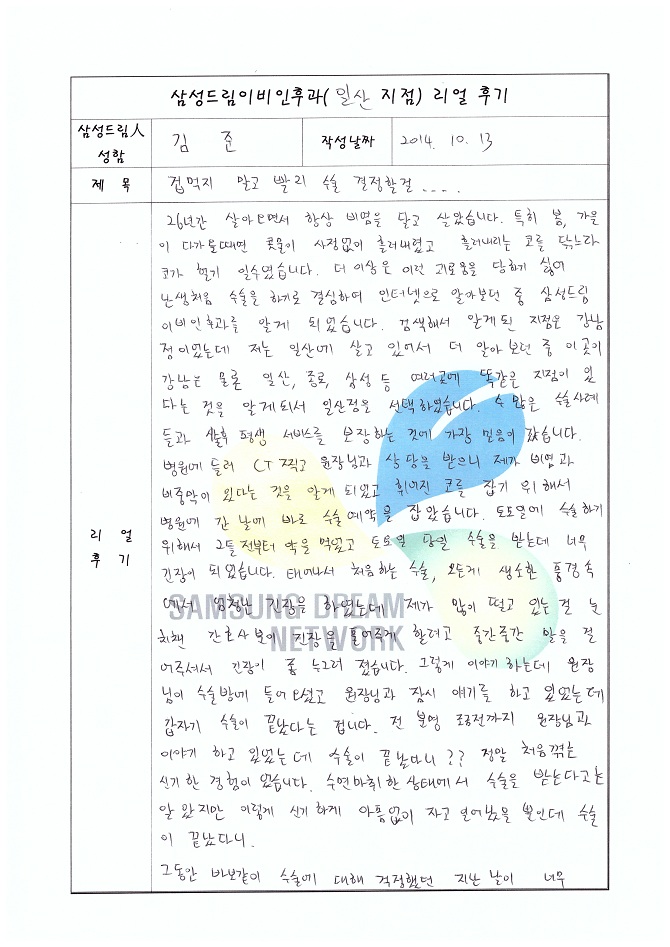 삼성드림이비인후과( 일산 지점) 리얼 후기
삼성드림人 성함
김 준
작성날짜
2014. 10. 13
제 목
겁먹지 말고 빨리 수술 결정할걸 ....
리 얼
후 기
26년간 살아오면서 항상 비염을 달고 살았습니다. 특히 봄, 가을
이 다가올때면 콧물이 사정없이 흘러내렸고 흘러내리는 코를 닦느라
코가 헐기 일수였습니다. 더 이상은 이런 괴로움을 당하기 싫어
난생처음 수술을 하기로 결심하여 인터넷으로 알아보던 중 삼성드림
이비인후과를 알게 되었습니다. 검색해서 알게된 지점은 강남
점이었는데 저는 일산에 살고 있어서 더 알아보던 중 이곳이
강남은 물론 일산, 종로, 삼성 등 여러곳에 똑같은 지점이 있
다는 것을 알게되서 일산점을 선택하였습니다. 수많은 수술사례
들과 사후 평생 서비스를 보장하는 것에 가장 믿음이 갔습니다.
병원에 들러 CT 찍고 원장님과 상담을 받으니 제가 비염과
비중막이 있다는 것을 알게 되었고 휘어진 코를 잡기 위해서
병원에 간 날에 바로 수술예약을 잡았습니다. 토요일에 수술하기
위해서 그틀전부터 약을 먹었고 토요일 당일 수술을 받는데 너무
긴장이 되었습니다. 태어나서 처음하는 수술, 모든게 생소한 풍경속
에서 엄청난 긴장을 하였는데 제가 많이 떨고 있는 걸 눈
치챈 간호사분이 긴장을 풀어주게 할려고 중간중간 말을 걸
어주셔서 긴장이 좀 누그러 졌습니다. 그렇게 이야기 하는데 원장
님이 수술방에 들어오셨고 원장님과 잠시 얘기를 하고 있었는데
갑자기 수술이 끝났다는 겁니다. 전 분명 조금전까지 원장님과
이야기 하고 있었는데 수술이 끝났다니?? 정말 처음겪는
신기한 경험이었습니다. 수면마취한 상태에서 수술을 받는다고는
알았지만 이렇게 신기하게 아픔없이 자고 일어났을 뿐인데 수술
이 끝났다니.
그동안 바보같이 수술에 대해 걱정했던 지난 날이 너무
SAMSUNG DREAM
NETWORK